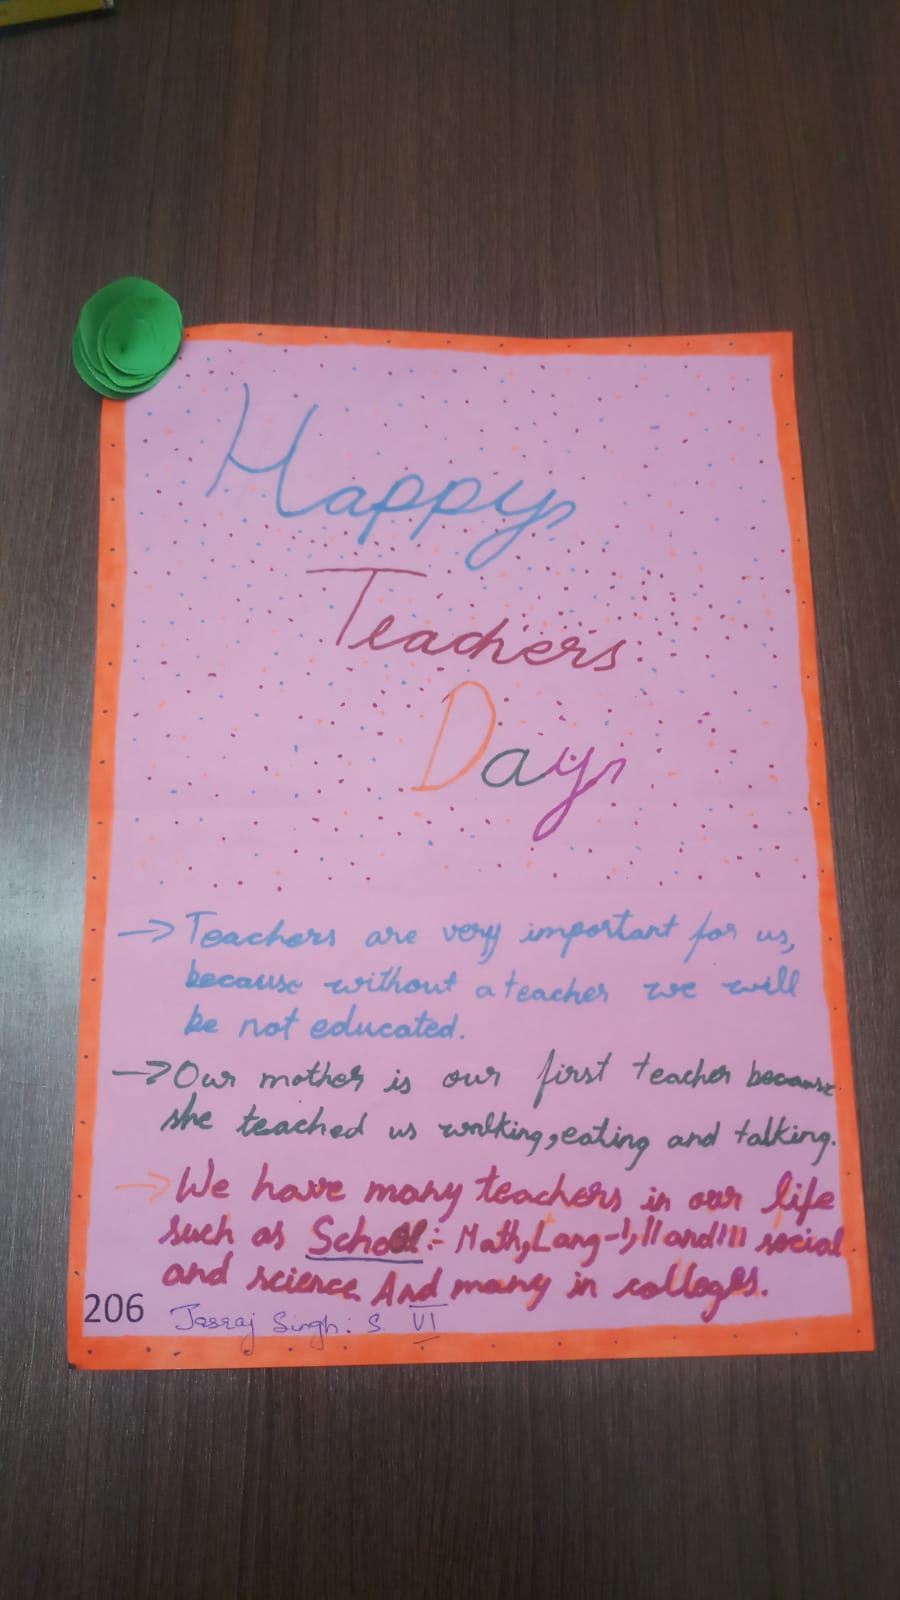 Happy
Teachers
Day
→ Teachers are very important for us,
because without a teacher we will
be not educated.
→ Our mother is our first teacher because
she teached us walking, eating and talking.
→ We have many teachers in our life
such as School:- Math, Lang-I, II and III social
and science And many in colloges.
206 Jasraj Singh: S VI